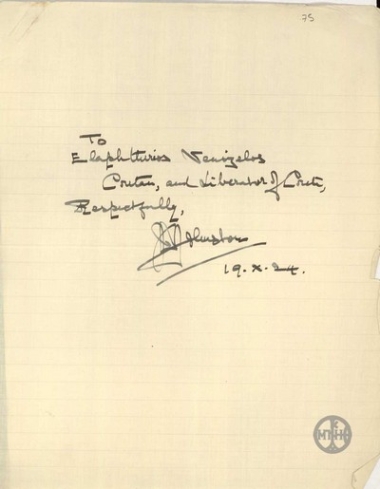 75
To
Elaphtturios Venizelos
Cretan, and Liberator of Crete,
Respectfully,
Johnston
19.X.24.